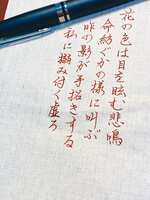 花の色は目を眩む悲鳴
命紡ぐかの様に叫ぶ
昨の影が手招きする
私に擬み付く虚ろ